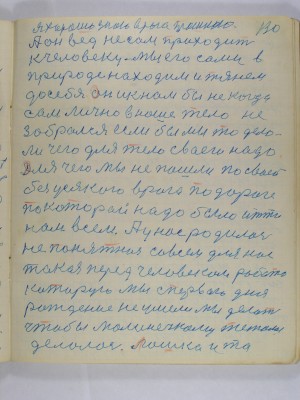 я хорошо знаю врага границо. 130
А он вед не сам приходит
к человеку. мы его сами в
природе находим и тянем
до себя. Он и к нам бы не когда
сам лично в наше тело не
забрался если бы мы то дела-
ли чего для тело своего надо.
Для чего мы не пошли по своей
без усякого врага по дороге
по которой надо было итти
нам всем. А у нас родилас
не понятная совсем для нас
такая перед человеком работа
которую мы с первого дня
рождение не умели мы делат
чтобы малинечкому тепло
делалос. Мошка и та